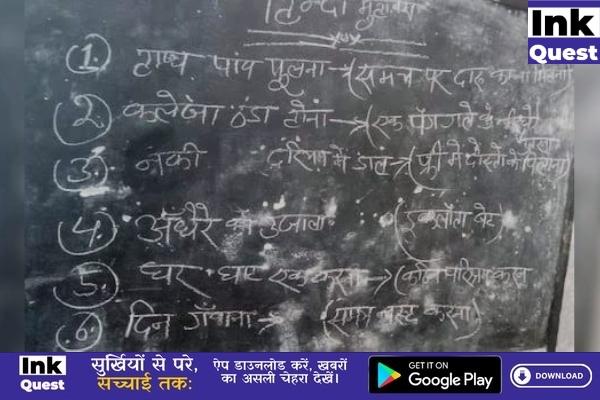 हिन्दी मुहावरा
Ink
Quest
① हाथ पांव फूलना → (समय पर दारू का ना मिलना)
② कलेजा ठंडा होना → (एक पेग गले के नीचे
③ नेकी दरिया में डाल → (फ्री में दोस्तों को पिलाना)
④ अँधेरे का उजाला (इकलौता बेटा)
⑤ घर घर एक करना → (कठिन परिश्रम करना
⑥ दिन गँवाना → (समय नष्ट करना)
Ink
Quest
सुर्खियों से परे,
सच्चाई तक:
ऐप डाउनलोड करें, खबरों
का असली चेहरा देखें।
GET IT ON
Google Play
DOWNLOAD